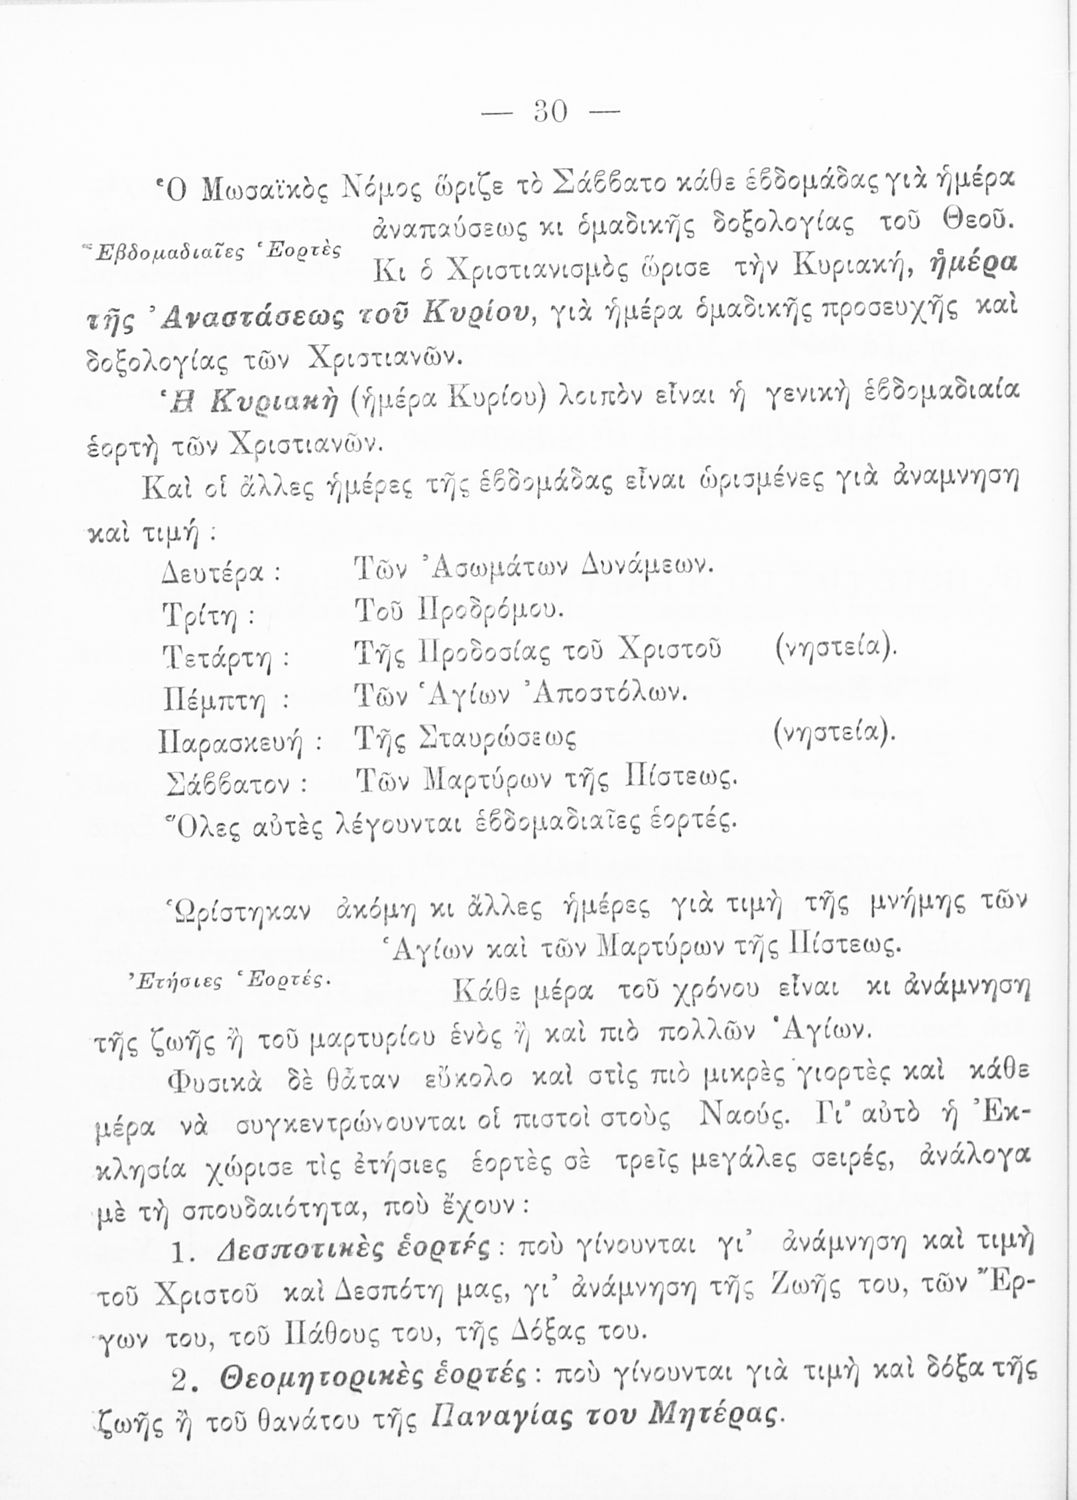 — 30 —
Ὁ Μωσαϊκὸς Νόμος ὥριζε τὸ Σάββατο κάθε ἑβδομάδας γιὰ ἡμέρα
ἀναπαύσεως κι ὁμαδικῆς δοξολογίας τοῦ Θεοῦ.
Ἑβδομαδιαῖες Ἑορτὲς
Κι ὁ Χριστιανισμὸς ὥρισε τὴν Κυριακή, ἡμέρα
τῆς Ἀναστάσεως τοῦ Κυρίου, γιὰ ἡμέρα ὁμαδικῆς προσευχῆς καὶ
δοξολογίας τῶν Χριστιανῶν.
Ἡ Κυριακὴ (ἡμέρα Κυρίου) λοιπὸν εἶναι ἡ γενικὴ ἑβδομαδιαία
ἑορτὴ τῶν Χριστιανῶν.
Καὶ οἱ ἄλλες ἡμέρες τῆς ἑβδομάδας εἶναι ὡρισμένες γιὰ ἀναμνηση
καὶ τιμή :
Δευτέρα : Τῶν Ἀσωμάτων Δυνάμεων.
Τρίτη : Τοῦ Προδρόμου.
Τετάρτη : Τῆς Προδοσίας τοῦ Χριστοῦ (νηστεία).
Πέμπτη : Τῶν Ἁγίων Ἀποστόλων.
Παρασκευή : Τῆς Σταυρώσεως (νηστεία).
Σάββατον : Τῶν Μαρτύρων τῆς Πίστεως.
Ὅλες αὐτὲς λέγουνται ἑβδομαδιαῖες ἑορτές.
Ὡρίστηκαν ἀκόμη κι ἄλλες ἡμέρες γιὰ τιμὴ τῆς μνήμης τῶν
Ἁγίων καὶ τῶν Μαρτύρων τῆς Πίστεως.
Ἐτήσιες Ἑορτές.
Κάθε μέρα τοῦ χρόνου εἶναι κι ἀνάμνηση
τῆς ζωῆς ἢ τοῦ μαρτυρίου ἑνὸς ἢ καὶ πιὸ πολλῶν Ἁγίων.
Φυσικὰ δὲ θἆταν εὔκολο καὶ στὶς πιὸ μικρὲς γιορτὲς καὶ κάθε
μέρα νὰ συγκεντρώνουνται οἱ πιστοὶ στοὺς Ναούς. Γι' αὐτὸ ἡ Ἐκ-
κλησία χώρισε τὶς ἐτήσιες ἑορτὲς σὲ τρεῖς μεγάλες σειρές, ἀνάλογα
μὲ τὴ σπουδαιότητα, ποὺ ἔχουν :
1. Δεσποτικὲς ἑορτές : ποὺ γίνουνται γι' ἀνάμνηση καὶ τιμὴ
τοῦ Χριστοῦ καὶ Δεσπότη μας, γι' ἀνάμνηση τῆς Ζωῆς του, τῶν Ἔρ-
γων του, τοῦ Πάθους του, τῆς Δόξας του.
2. Θεομητορικὲς ἑορτές : ποὺ γίνουνται γιὰ τιμὴ καὶ δόξα τῆς
ζωῆς ἢ τοῦ θανάτου τῆς Παναγίας του Μητέρας.